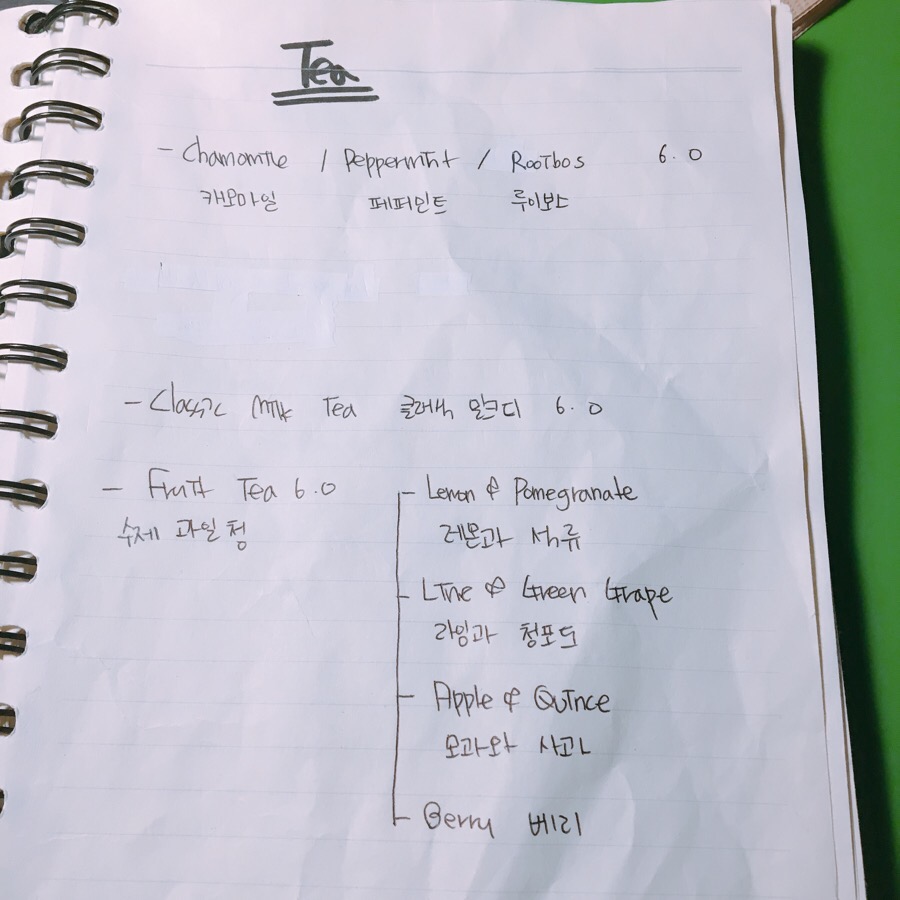 Tea
- Chamomile / Peppermint / Rooibos 6.0
캐모마일 페퍼민트 루이보스
- Classic Milk Tea 클래식 밀크티 6.0
- Fruit Tea 6.0
수제 과일청
- Lemon & Pomegranate
레몬과 석류
- Lime & Green Grape
라임과 청포도
- Apple & Quince
모과와 사과
- Berry 베리